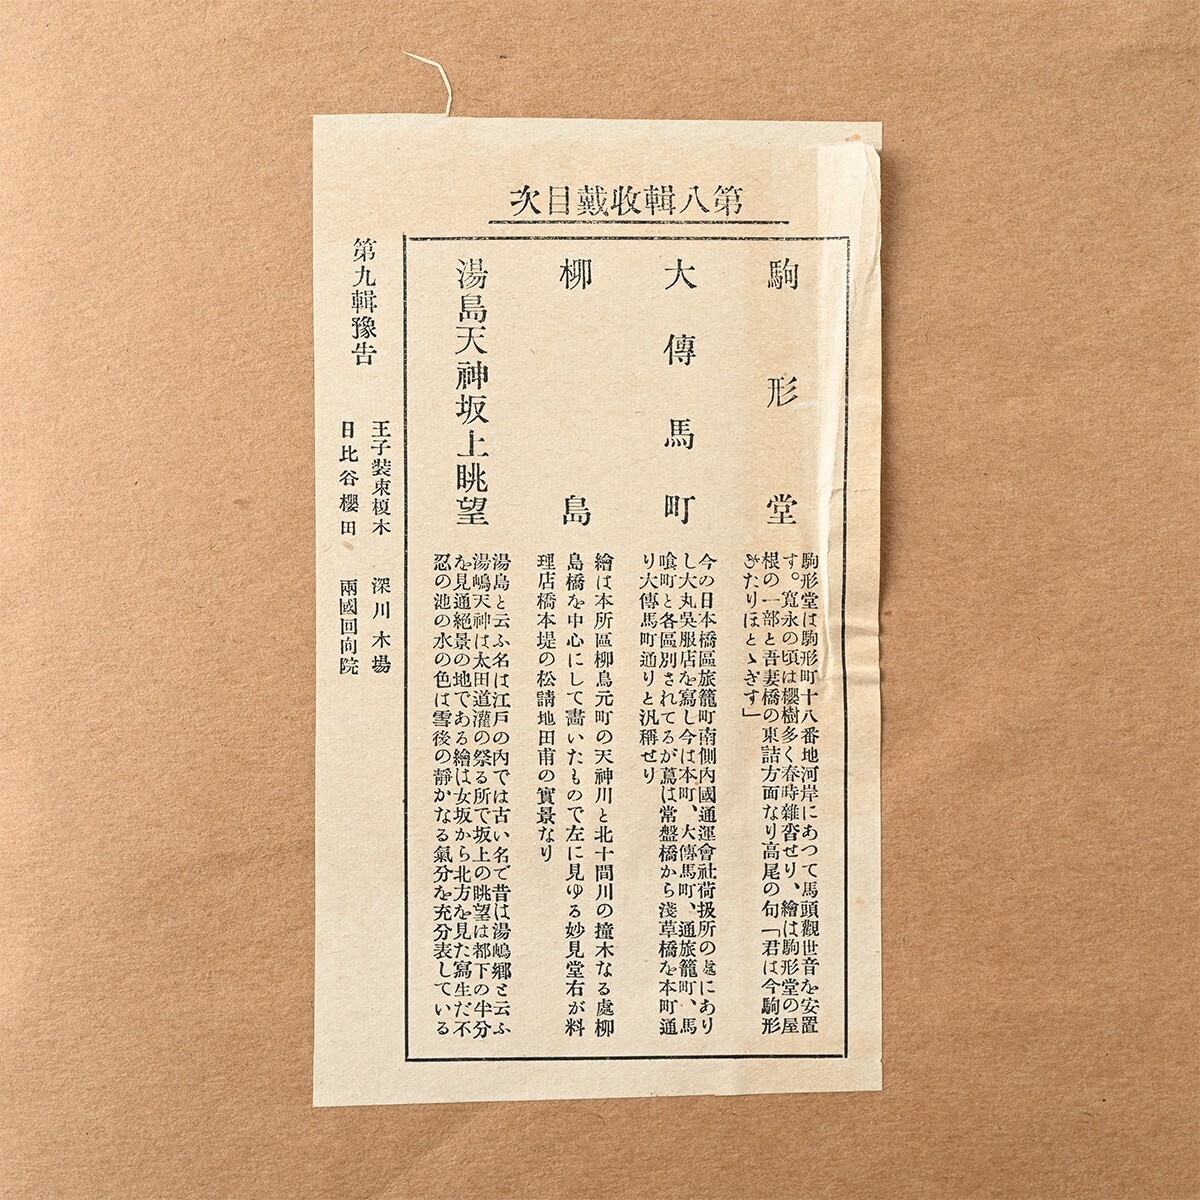 第八輯收戴目次
駒形堂
駒形堂は駒形町十八番地河岸にあつて馬頭觀世音を安置
す。寬永の頃は櫻樹多く春時雜沓せり、繪は駒形堂の屋
根の一部と吾妻橋の東詰方面なり高尾の句「君は今駒形
あたりほとゝぎす」
大傳馬町
今の日本橋區旅籠町南側內國通運會社荷扱所の處にあり
し大丸吳服店を寫し今は本町、大傳馬町、通旅籠町、馬
喰町と各區別されてるが舊は常盤橋から淺草橋を本町通
り大傳馬町通りと汎稱せり
柳島
繪は本所區柳島元町の天神川と北十間川の撞木なる處柳
島橋を中心にして畵いたもので左に見ゆる妙見堂右が料
理店橋本堤の松請地田甫の實景なり
湯島天神坂上眺望
湯島と云ふ名は江戶の內では古い名で昔は湯嶋鄕と云ふ
湯嶋天神は太田道灌の祭る所で坂上の眺望は都下の半分
を見通絕景の地である繪は女坂から北方を見た寫生だ不
忍の池の水の色は雪後の靜かなる氣分を充分表している
第九輯豫吿
王子裝束榎木　深川木場
日比谷櫻田　兩國回向院